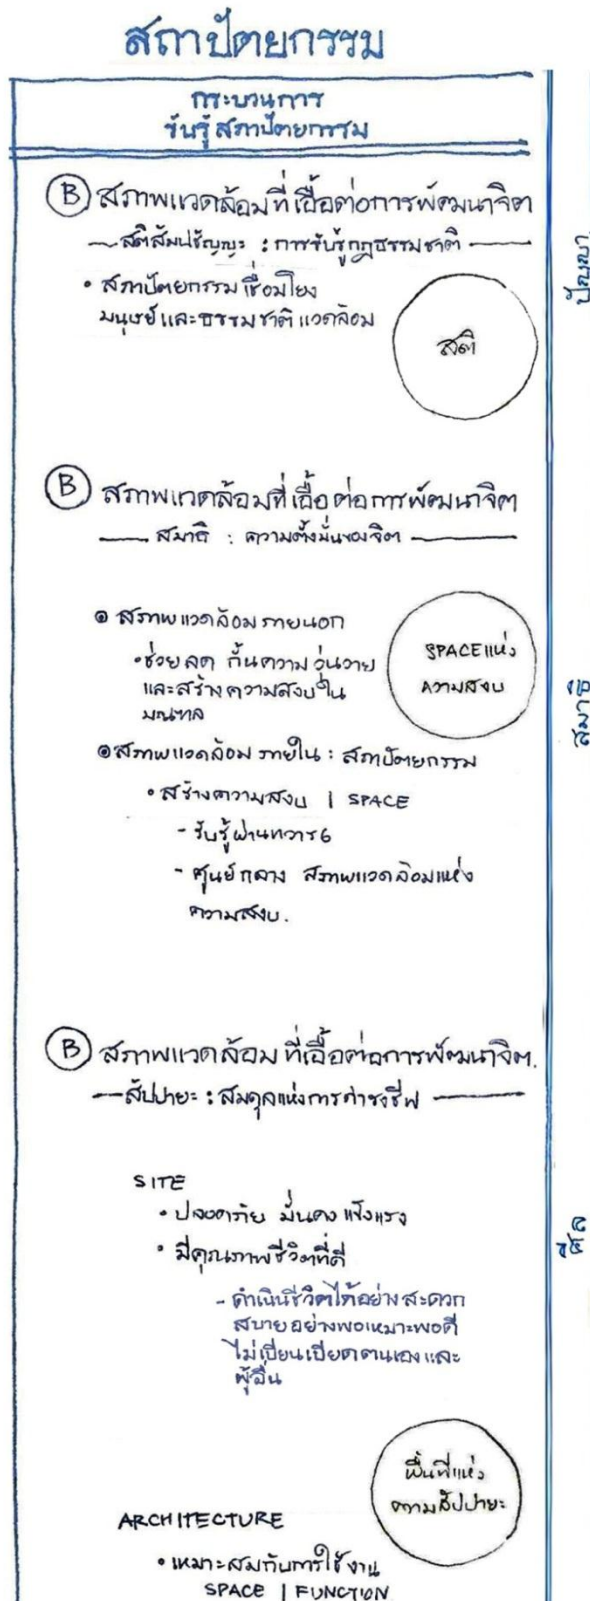 สถาปัตยกรรม
กระบวนการ
รับรู้สถาปัตยกรรม
B สภาพแวดล้อมที่เอื้อต่อการพัฒนาจิต
สติสัมปชัญญะ : การรับรู้กฎธรรมชาติ
• สถาปัตยกรรมเชื่อมโยง
มนุษย์และธรรมชาติแวดล้อม
สติ
ปัญญา
B สภาพแวดล้อมที่เอื้อต่อการพัฒนาจิต
สมาธิ : ความตั้งมั่นของจิต
๑ สภาพแวดล้อมภายนอก
• ช่วยลด กั้นความวุ่นวาย
และสร้างความสงบใน
มณฑล
SPACE แห่ง
ความสงบ
สมาธิ
๑ สภาพแวดล้อมภายใน : สถาปัตยกรรม
• สร้างความสงบ | SPACE
- รับรู้ผ่านทวาร 6
- ศูนย์กลาง สภาพแวดล้อมแห่ง
ความสงบ.
B สภาพแวดล้อมที่เอื้อต่อการพัฒนาจิต.
สัปปายะ : สมดุลแห่งการดำรงชีพ
SITE
• ปลอดภัย มั่นคง แข็งแรง
• มีคุณภาพชีวิตที่ดี
- ดำเนินชีวิตได้อย่างสะดวก
สบายอย่างพอเหมาะพอดี
ไม่เบียนเบียดตนเองและ
ผู้อื่น
ศีล
พื้นที่แห่ง
ความสัปปายะ
ARCHITECTURE
• เหมาะสมกับการใช้งาน
SPACE | FUNCTION